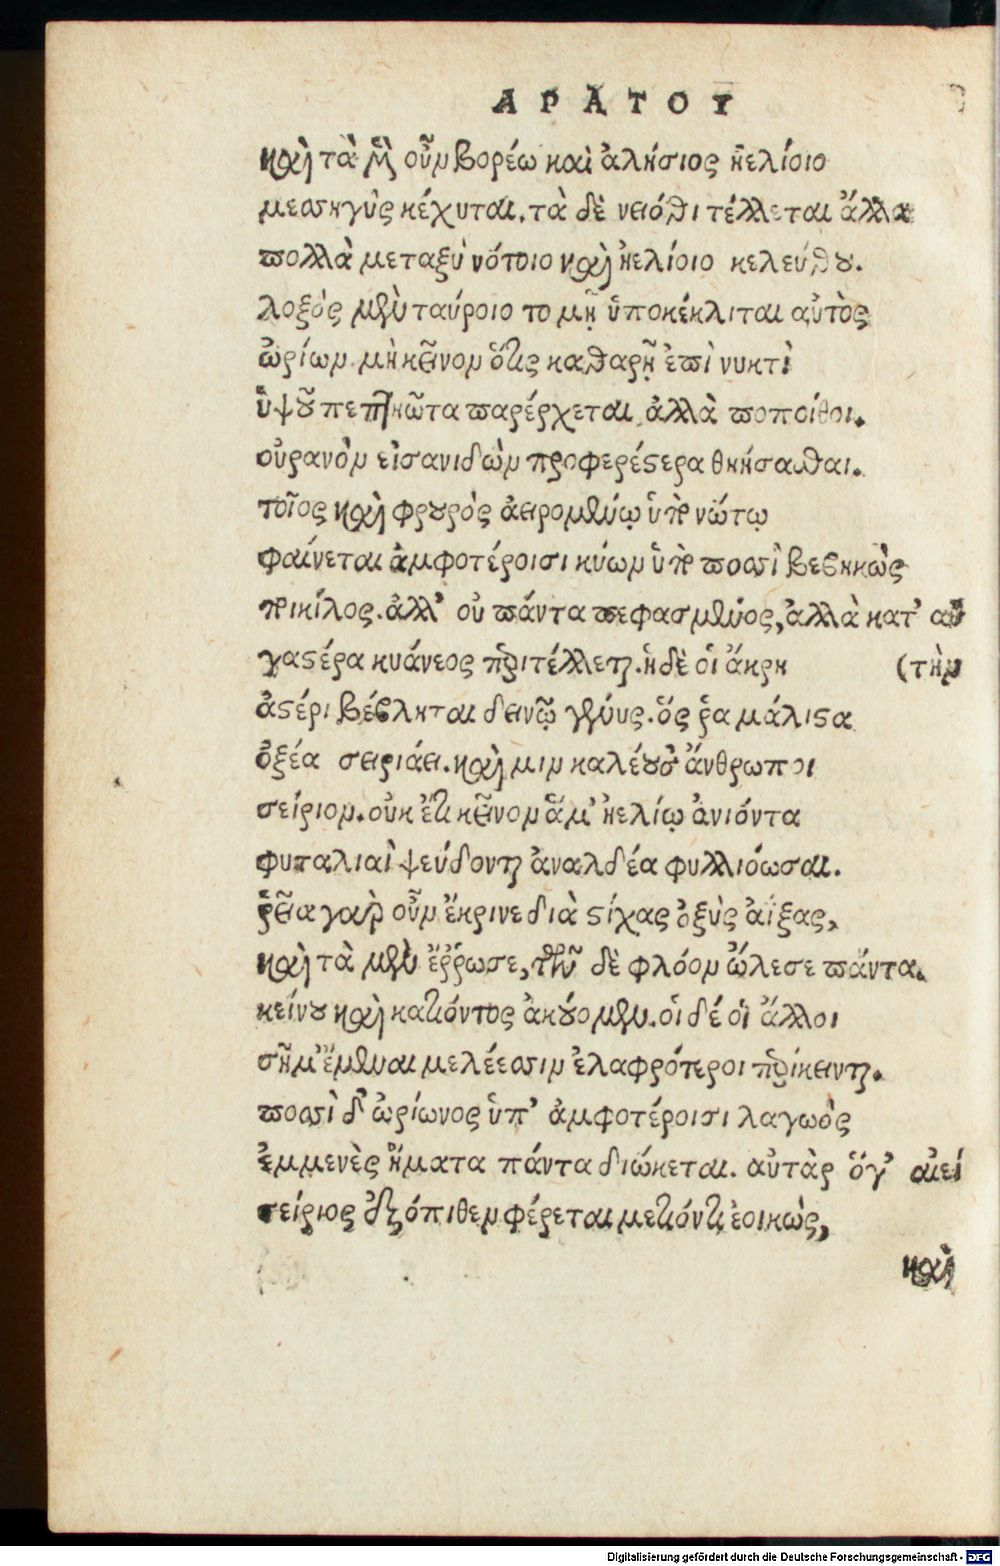 ΑΡΑΤΟΥ
καὶ τὰ μὲν οὖν βορέω καὶ ἀλήσιος ἠελίοιο
μεσσηγὺς κέχυται. τὰ δὲ νειόθι τέλλεται ἄλλα
πολλὰ μεταξὺ νότοιο καὶ ἠελίοιο κελεύθου.
λοξὸς μὲν ταύροιο τομῇ ὑποκέκλιται αὐτὸς
ὠρίων. μὴ κεῖνον ὅτις καθαρῇ ἐπὶ νυκτὶ
ὑψοῦ πεπτηκῶτα παρέρχεται, ἀλλὰ ποποίθοι.
οὐρανὸν εἰσανιδὼν προφερέστερα θηήσασθαι.
τοῖος καὶ φρουρὸς ἀειρομένῳ ὑπὸ νώτῳ
φαίνεται ἀμφοτέροισι κύων ὑπὸ ποσσὶ βεβηκὼς
ποικίλος. ἀλλ' οὐ πάντα πεφασμένος, ἀλλὰ κατ' αὐ
γαστέρα κυάνεος περιτέλλεται. ἡ δὲ οἱ ἄκρη (τὴν
ἀστέρι βέβληται δεινῷ γένυς. ὅς ῥα μάλιστα
ὀξέα σειριάει. καὶ μιν καλέουσ' ἄνθρωποι
σείριον. οὐκ ἔτι κεῖνον ἅμ' ἠελίῳ ἀνιόντα
φυταλιαὶ ψεύδονται ἀναλδέα φυλλιόωσαι.
ῥεῖα γὰρ οὖν ἔκρινε διὰ στίχας ὀξὺς ἀΐξας,
καὶ τὰ μὲν ἔῤῥωσε, τῶν δὲ φλόον ὤλεσε πάντα.
κείνου καὶ κατιόντος ἀκούομεν. οἱ δέ οἱ ἄλλοι
σῆμ' ἔμεναι μελέεσσιν ἐλαφρότεροι περίκεινται.
ποσσὶ δ' ὠρίωνος ὑπ' ἀμφοτέροισι λαγωὸς
ἐμμενὲς ἤματα πάντα διώκεται. αὐτὰρ ὅγ' αἰεί
σείριος ἐξόπιθεν φέρεται μετιόντι ἐοικώς,
καὶ
Digitalisierung gefördert durch die Deutsche Forschungsgemeinschaft - DFG